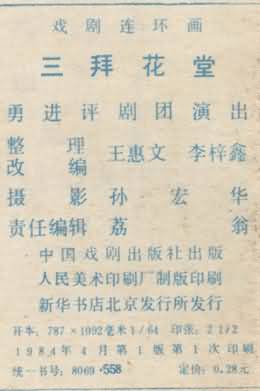 戏剧连环画
三拜花堂
勇进评剧团演出
整理
改编 王惠文 李梓鑫
摄影 孙宏华
责任编辑 荔翁
中国戏剧出版社出版
人民美术印刷厂制版印刷
新华书店北京发行所发行
开本：787×1092毫米1/64 印张：2 1/2
1984年4月第1版第1次印刷
统一书号：8069·558 定价：0.28元